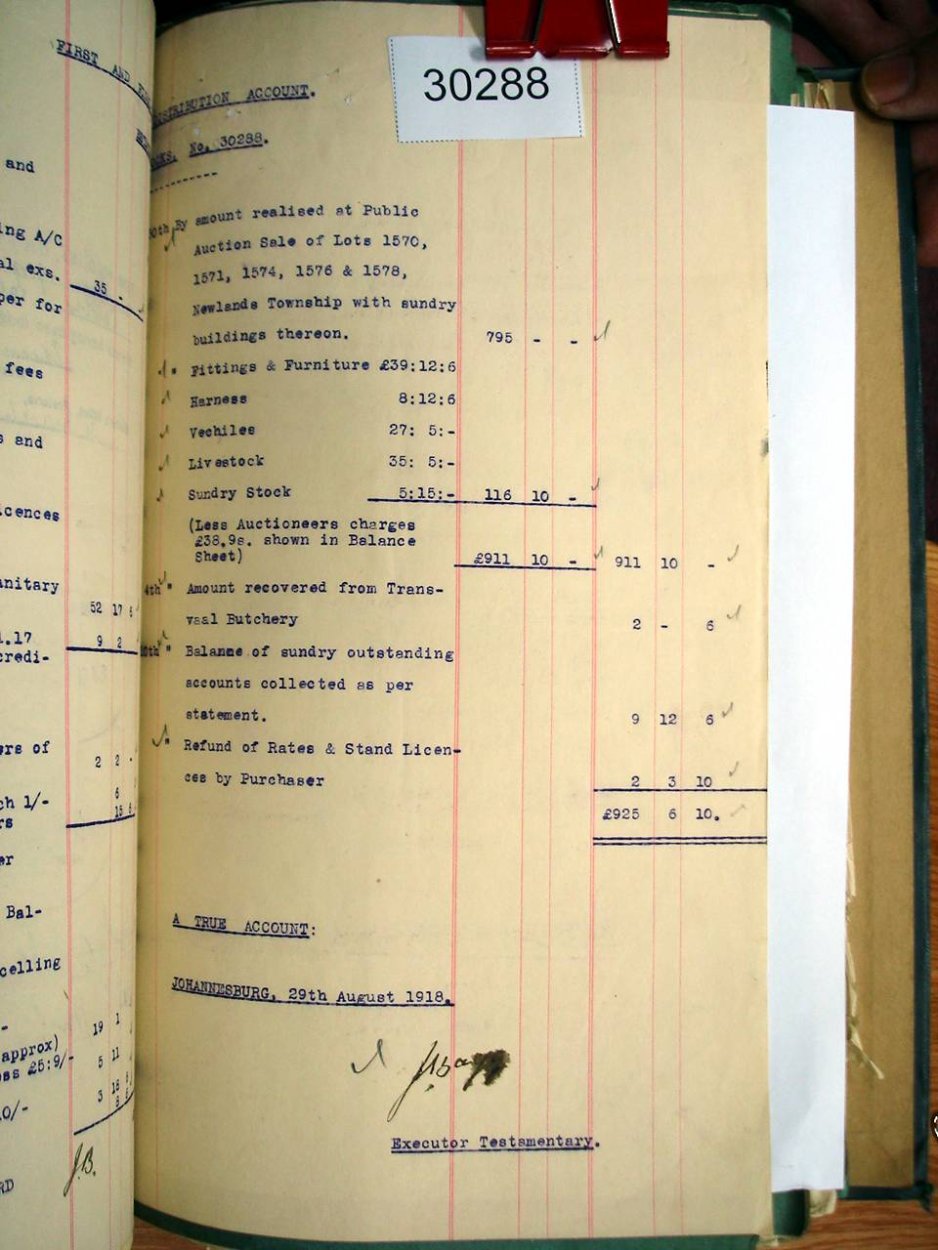 30288
FIRST AND
and
ing A/C
al exs.
35 -
per for
fees
s and
cences
anitary
52 17 6
1.17
9 2
credi-
ers of
2 2 -
6
ch 1/-
15 6
rs
er
Bal-
celling
-
19 1
approx)
5 11
ess £5:9/-
3 18 6
8 6
10/-
J.B.
RD
DISTRIBUTION ACCOUNT.
No. 30288.
30th By amount realised at Public
Auction Sale of Lots 1570,
1571, 1574, 1576 & 1578,
Newlands Township with sundry
buildings thereon. 795 - -
" Fittings & Furniture £39:12:6
Harness 8:12:6
Vechiles 27: 5:-
Livestock 35: 5:-
Sundry Stock 5:15:- 116 10 -
(Less Auctioneers charges
£38.9s. shown in Balance
Sheet) £911 10 - 911 10 -
4th " Amount recovered from Trans-
vaal Butchery 2 - 6
" Balance of sundry outstanding
accounts collected as per
statement. 9 12 6
" Refund of Rates & Stand Licen-
ces by Purchaser 2 3 10
£925 6 10.
A TRUE ACCOUNT:
JOHANNESBURG, 29th August 1918.
Executor Testamentary.